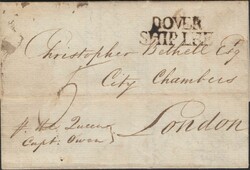 DOVER
SHIP LRE
Christopher Bethell Esq
City Chambers
London
p. the Queen
Capt: Owen